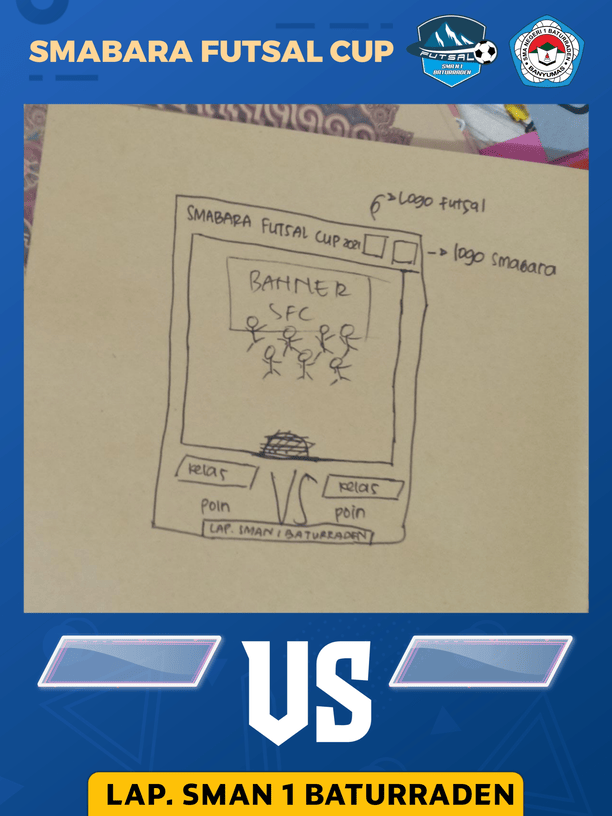 SMABARA FUTSAL CUP
FUTSAL
SMAN 1
BATURRADEN
SMA NEGERI 1 BATURRADEN
BANYUMAS
Logo Futsal
SMABARA FUTSAL CUP 2021
logo smabara
BANNER
SFC
kelas
VS
kelas
poin
poin
LAP. SMAN 1 BATURRADEN
VS
LAP. SMAN 1 BATURRADEN